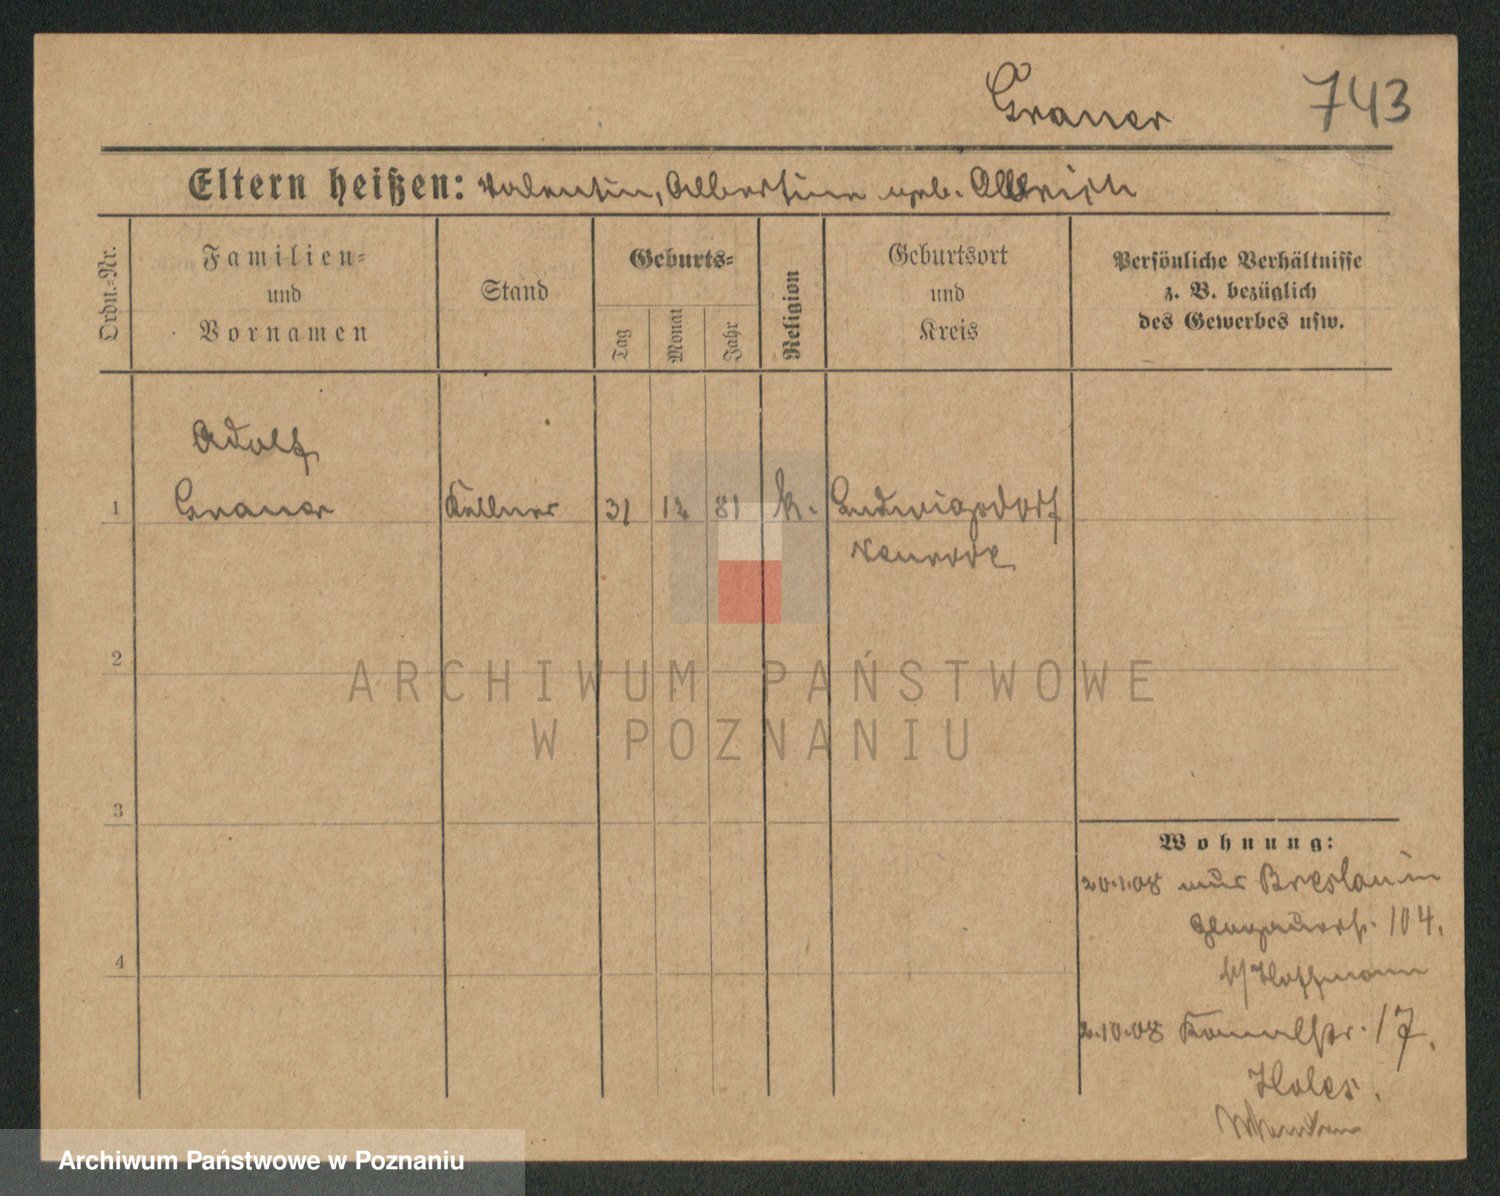 Graner 743
Eltern heißen: Valentin, Albertine geb.
Ordn.-Nr.
Familien-
und
Vornamen
Stand
Geburts-
Tag
Monat
Jahr
Religion
Geburtsort
und
Kreis
Persönliche Verhältnisse
z. B. bezüglich
des Gewerbes usw.
Adolf
1 Graner Kellner 31 12 81 k. Ludwigsdorf
Neurode
2
3
4
Wohnung:
20.1.08 aus Breslau in
Glogauerst. 104.
b/Hoffmann
2.10.08 Kanalstr. 17.
ARCHIWUM PAŃSTWOWE
W POZNANIU
Archiwum Państwowe w Poznaniu